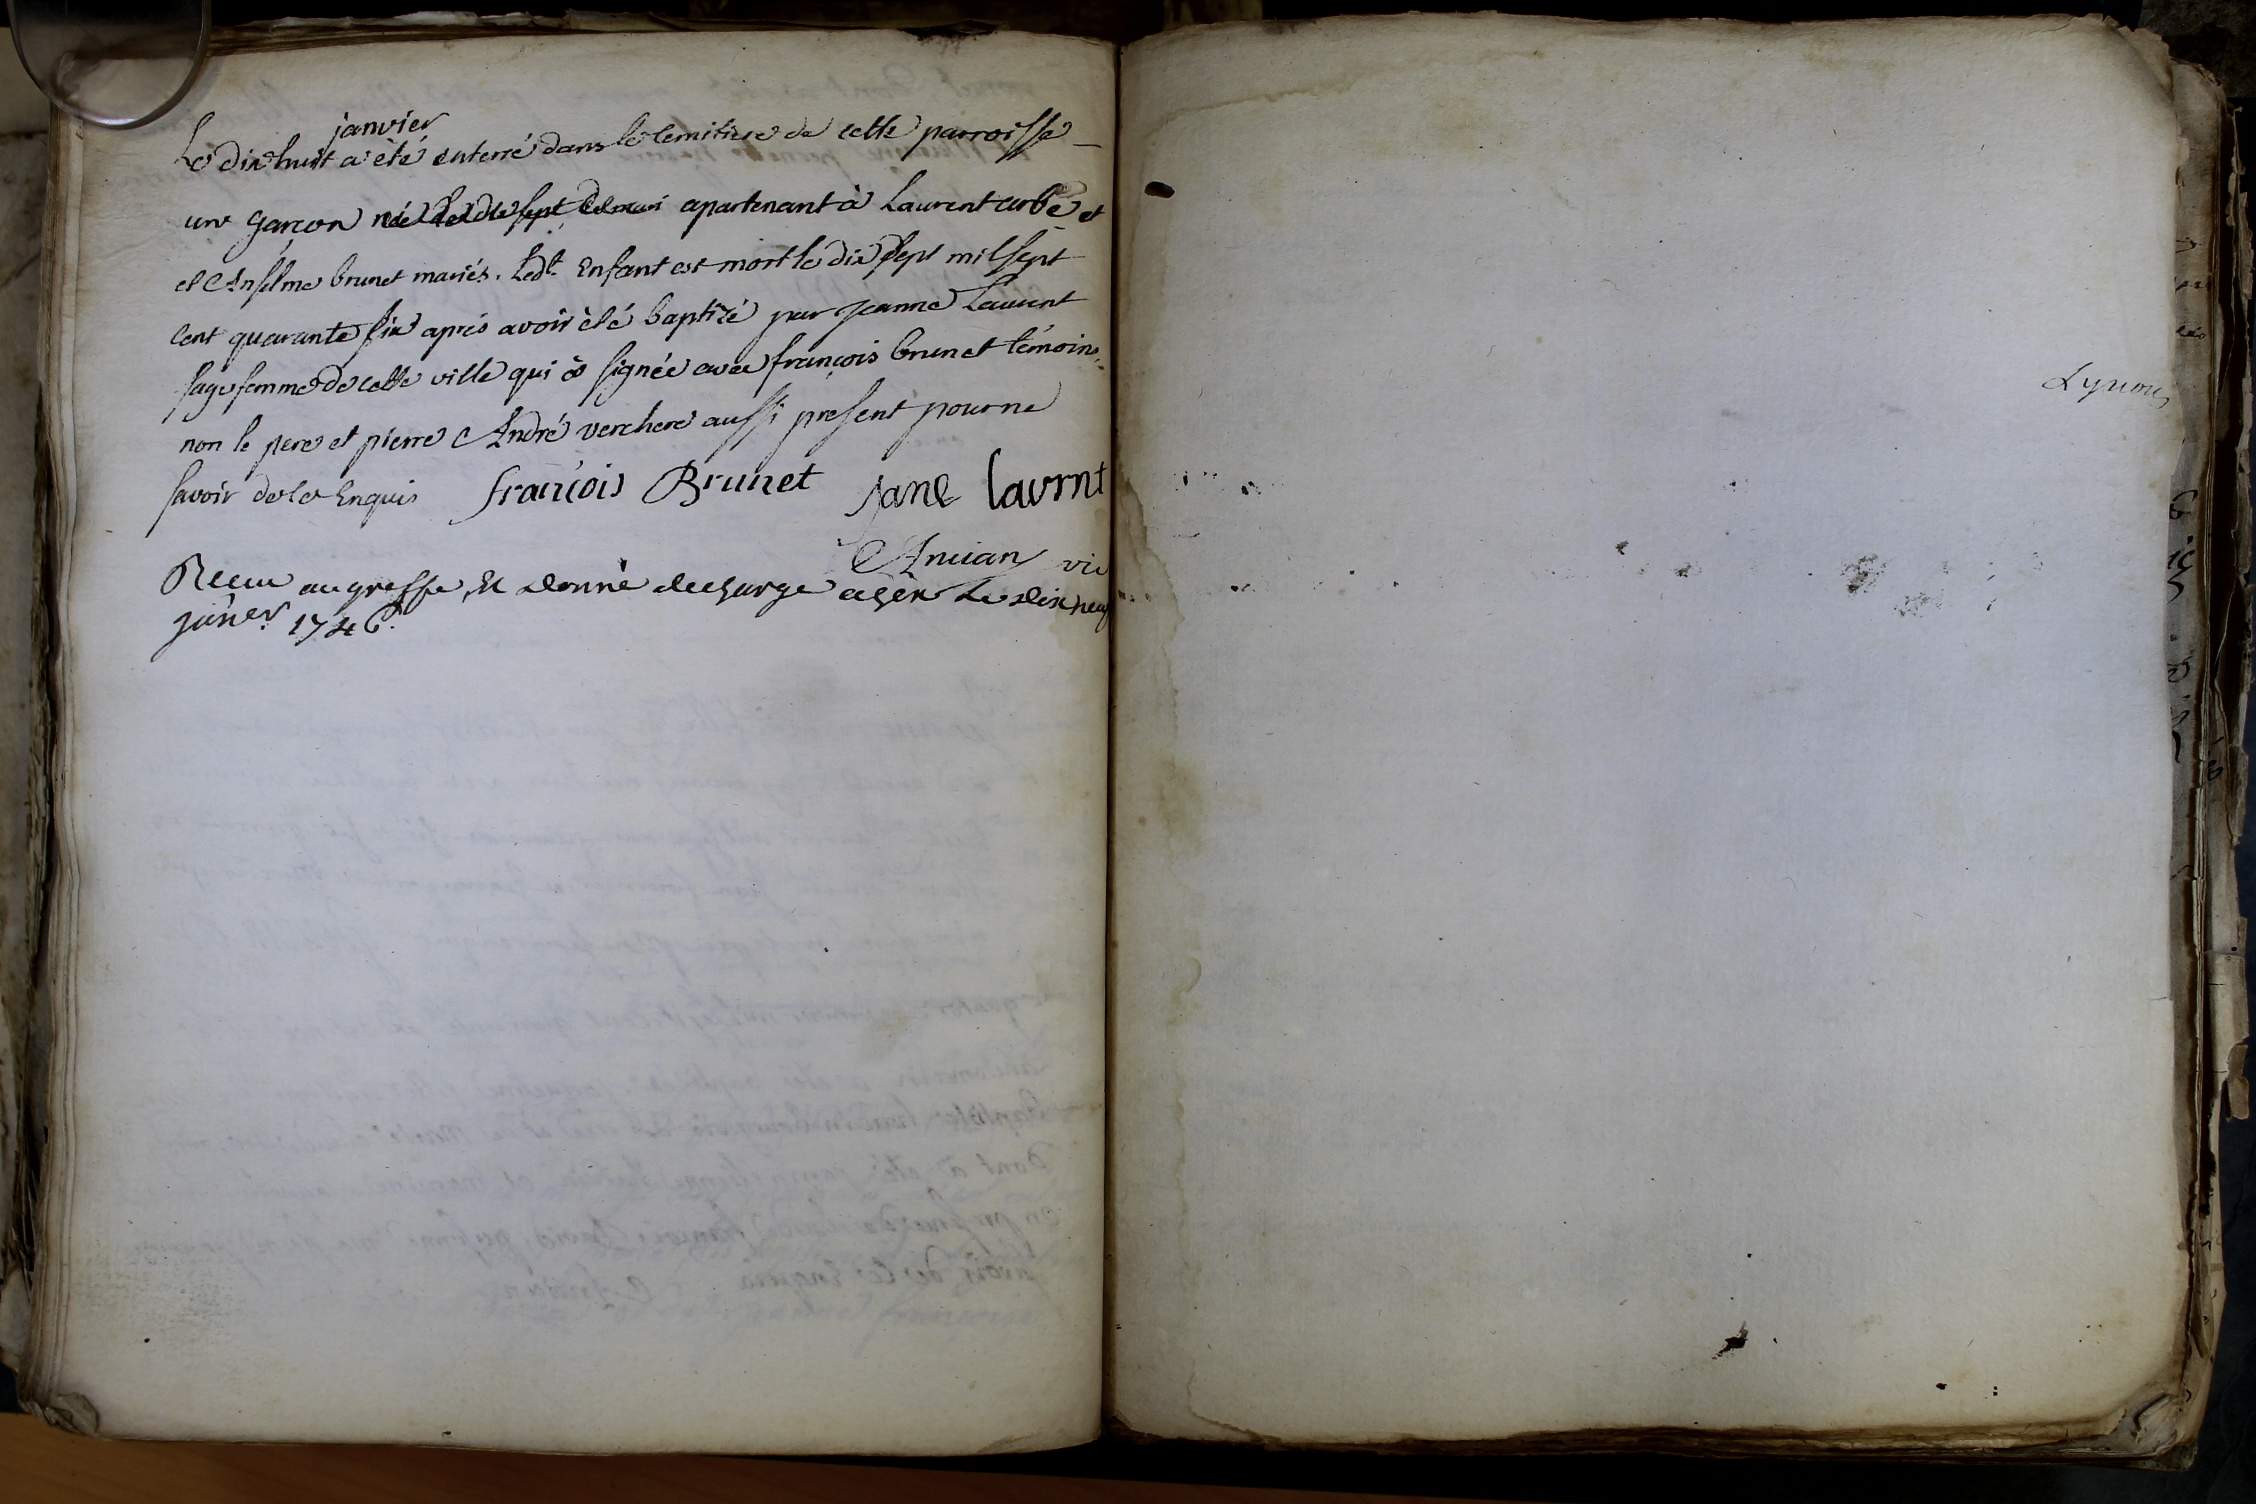 janvier
Le dix huit a èté enterré dans le cemitiere de cette parroisse
un garçon né apartenant à Laurent curbé et
et Anselme brunet mariés. Ledt Enfant est mort le dix sept mil sept
cent quarante six aprés avoir èté baptizé par jeanne Laurent
sage femme de cette ville qui a signée avec françois brunet témoins
non le pere et pierre André verchere aussi present pour ne
savoir de ce Enquis françois Brunet jane laurnt
Ancian vic
Receu au greffe, Et donné decharge le dix neuf
janer. 1746.